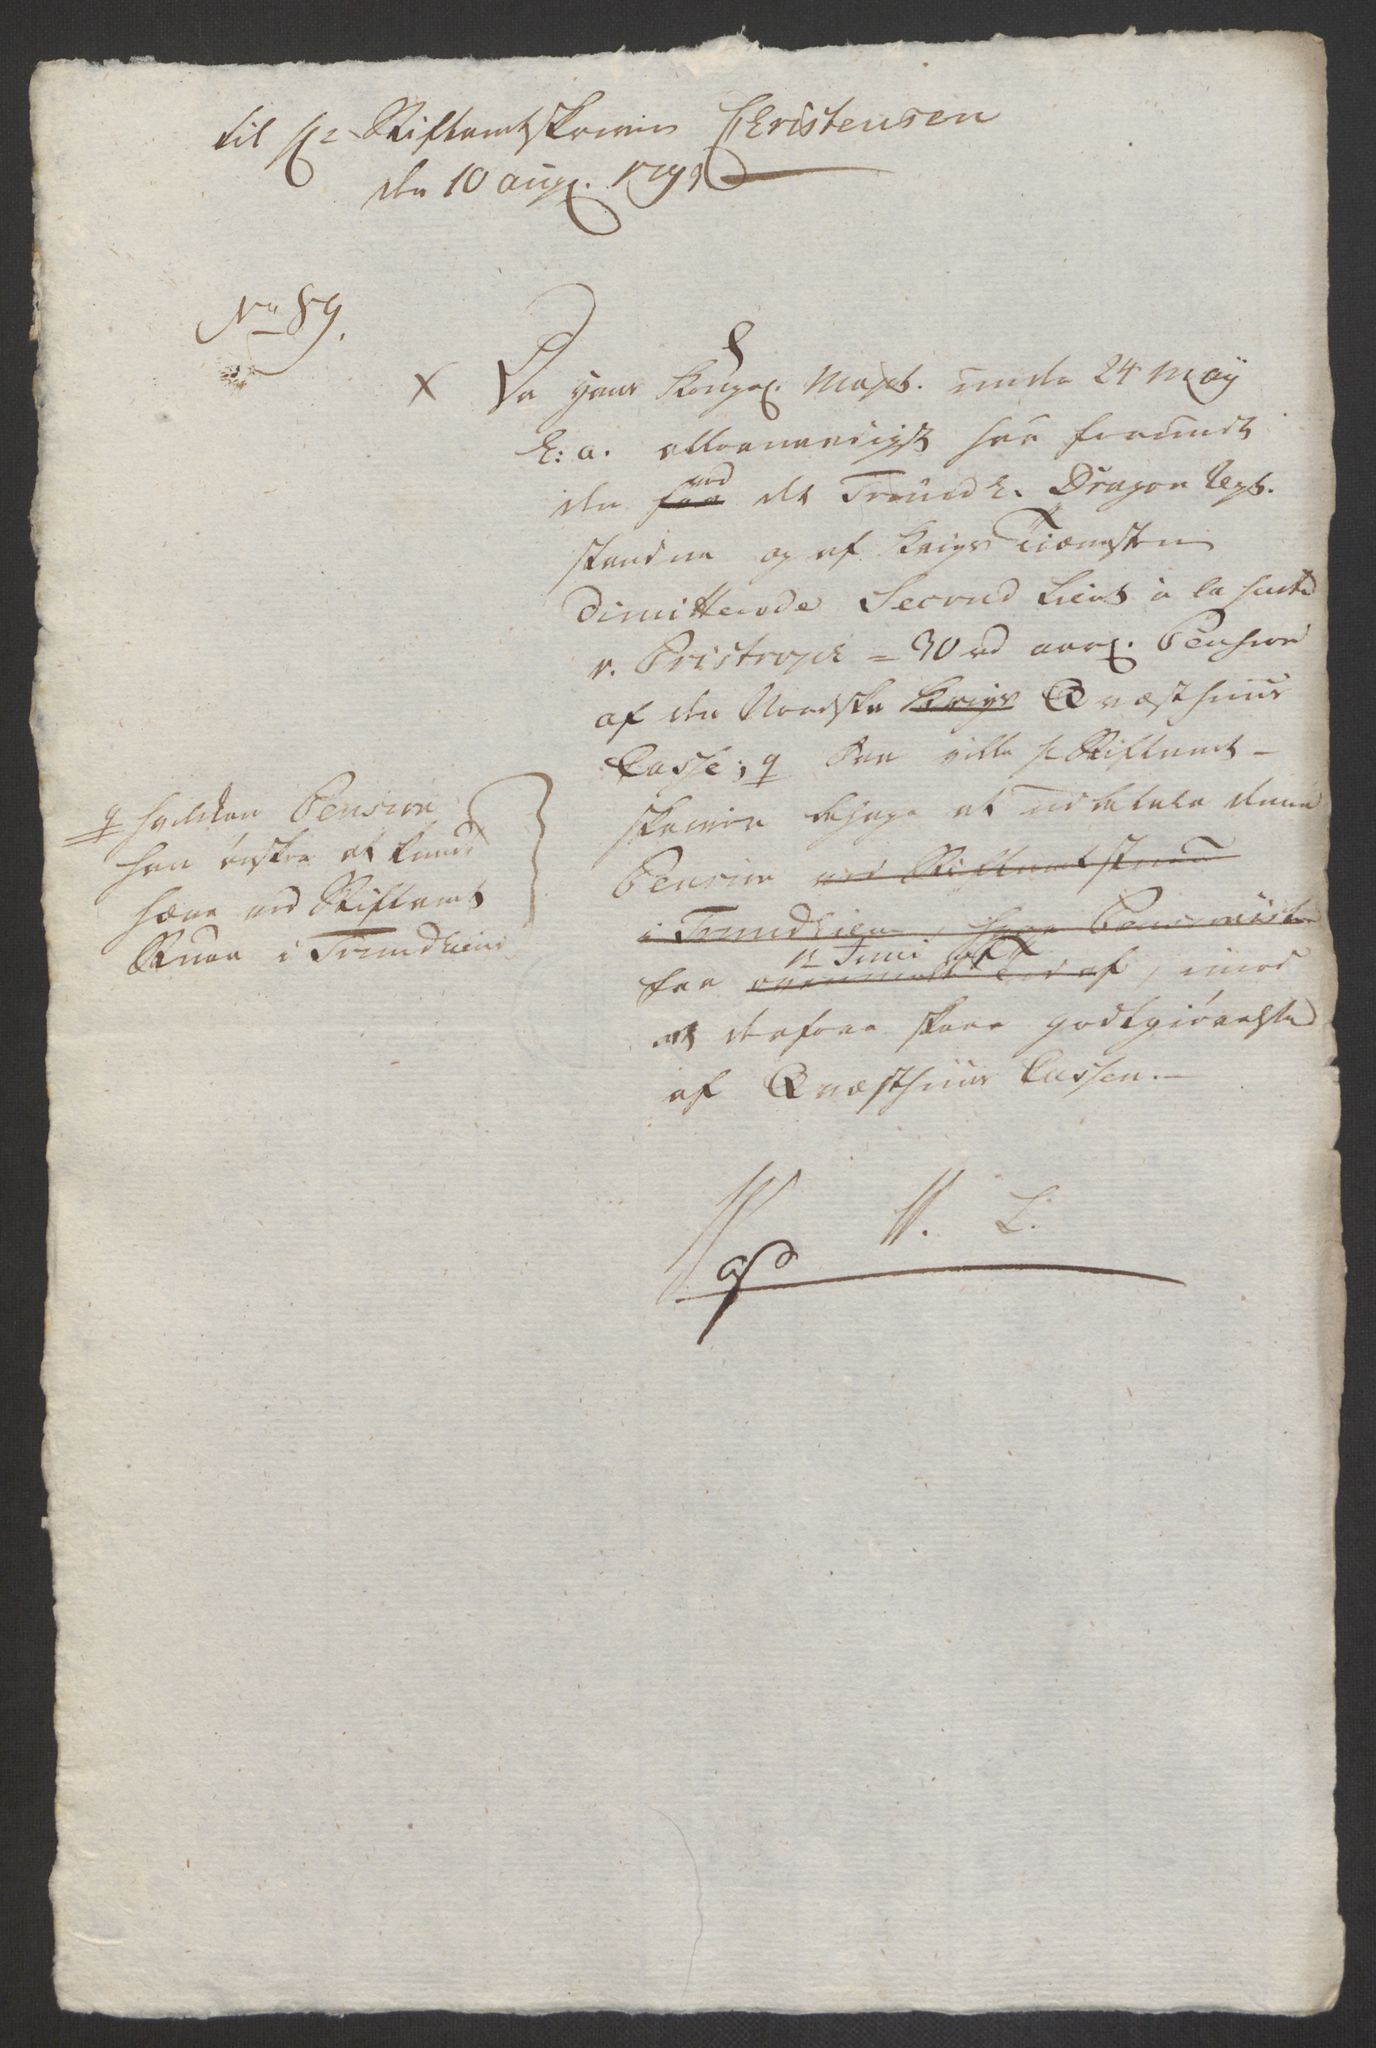 til Hr Stiftamtskriver Christensen
den 10 aug. 1791
No 89.
X Da Hans Kongel. Mayst. under 24 May
h: a. allernaadigst har forundt
den ~~fra~~ ved det Trondh. Dragon Regt.
staaende og af Krigs Tienesten
Dimitterede Second Lieut à la suite
v. Pristropch = 30 rd aarl. Pension
af den Norske ~~Krigs~~ Qvæsthuus
Casse; q Saa ville Hr Stiftamt-
skriveren behage at udbetale denne
Pension ~~ved Stiftamtstuen~~
~~i Trondhiem,~~
fra 12 Juni af, imod
at derfore skeer godtgiørelse
af Qvæsthuus Cassen.
q hvilken Pension
han ønsker at kunde
hæve ved Stiftamt
Stuen i Trondhiem